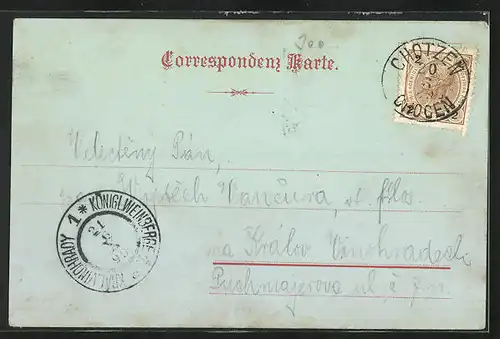 300
Correspondenz Karte.
CHOTZEN
CHOCEN
Velectěný Pán,
Vojtěch Vančura, st. filo.
na Králov. Vinohradech
Puchmajerova ul.
KÖNIGL. WEINBERGE
KRÁL. VINOHRADY 1